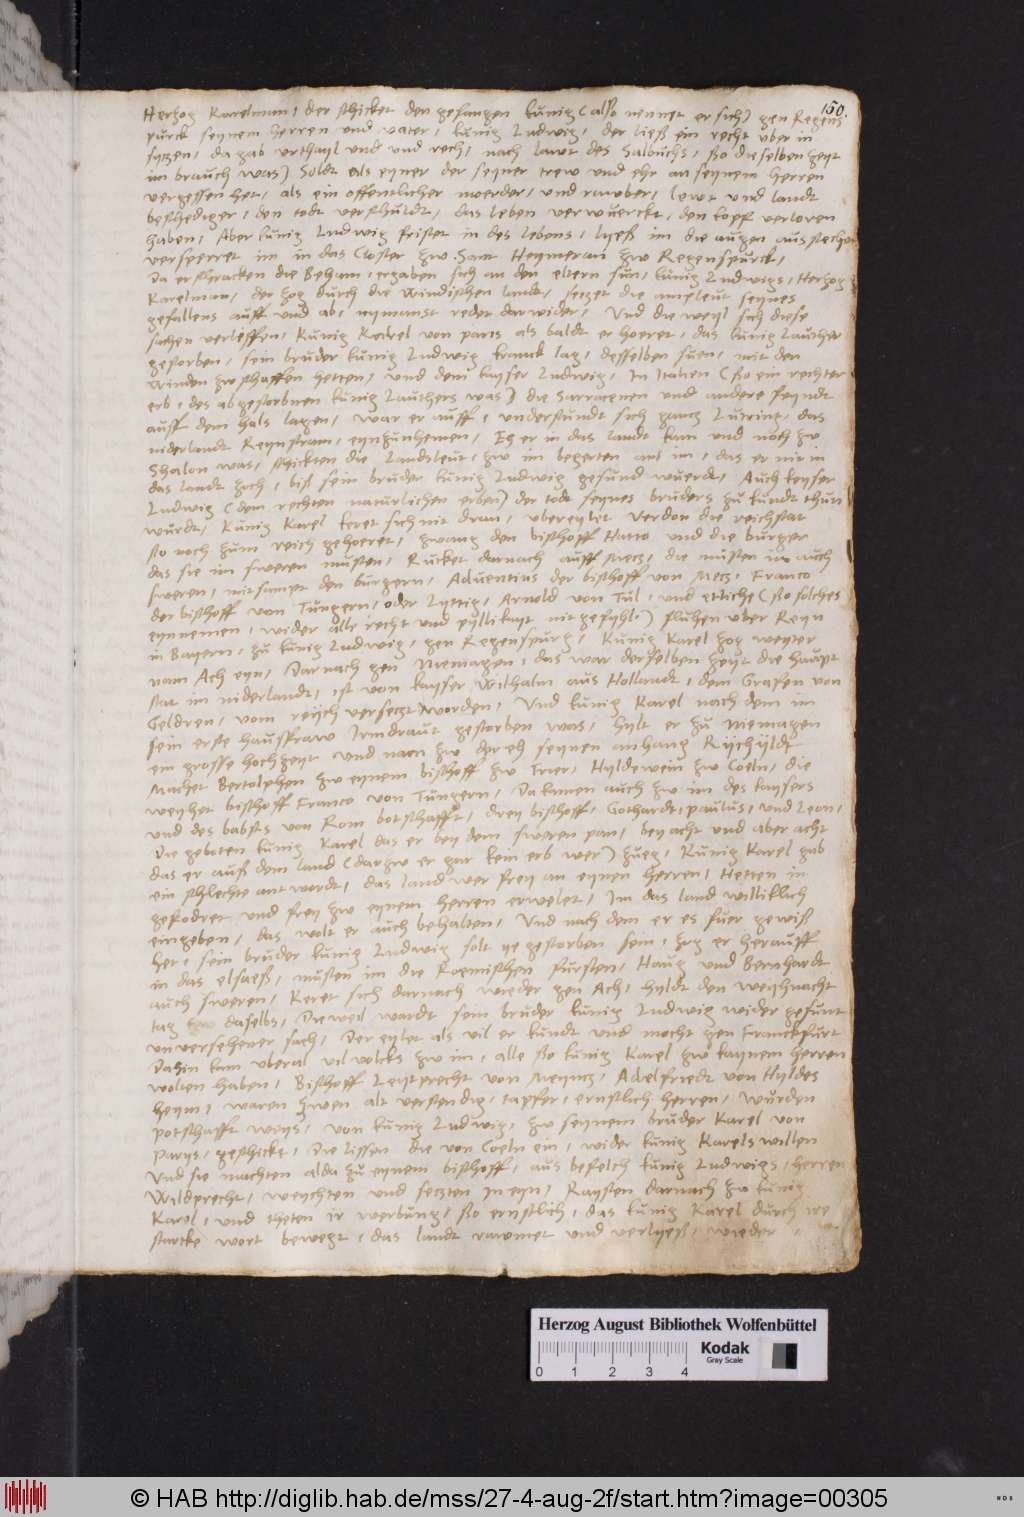 150.
Hertzog Karelman, der schicket den gefangen kunig (also nennet er sich) gen Regens
purck seynem herren und vater, kunig Ludwig, der ließ ein recht uber in
sytzen, da gab urthayl und und rech, nach lawt des Salbuchs, ßo dieselben zeyt
im brauch was) Soldt als eyner der seyner trew und ehr an seynem herren
vergessen het, als ein offentlicher moerder, und rawber, lewt und landt
beschediger, den todt verschuldt, das leben verwuerckt, den kopf verloren
haben, Aber kunig Ludwig fristet in des lebens, lyeß im die augen ausstechen
versperret im in das Closter zw Sant Heymeran zw Regenspurck,
Da erschracken die Beham, ergaben sich an den eltern sun, kunig Ludwigs, Hertzog
Karelman, der zog durch die Windischen landt, setzet die ampleut seynes
gefallens auff und ab, nymanst redet darwider, Und die weyl sich diese
sachen verleffen, Kunig Karel von paris als baldt er hoeret, das kunig Lauther
gestorben, sein bruder kunig Ludwig kranck lag, desselben suen, mit den
Winden zw schaffen hetten, und dem kayser Ludwig, In Italien (ßo ein rechter
erb, des abgestorbnen kunig Lauthers was) die Sarracenen und andere feyndt
auff dem hals lagen, war er auff, understundt sich gantz Lutring, das
niderlandt Reynstram, eynzunhemen, Eh er in das landt kam und noch zw
Shalon was, schickten die Landsleut, zw im begerten an im, das er nit in
das landt zoch, biß sein bruder kunig Ludwig gesund wuerdt, Auch keyser
Ludwig (dem rechten naturlichen erben) der todt seynes bruders zu kundt thun
wurdt, Kunig Karel keret sich nit dran, ubereylet Verdon die reichstat
ßo noch zum reich gehoeret, zwang den bischoff Hatto und die burger
das sie im sweren musten, Rucket darnach auff Metz, die musten im auch
sweren, mitsampt den burgern, Aduentius der bischoff von Metz, Franco
der bischoff von Tungern, oder Lyttig, Arnold von Tul, und etliche (ßo solches
eynnemen, wider alle recht und pyllikayt nit gefyhl) fluhen uber Reyn
in Bayern, zu kunig Ludwig, gen Regenspurg, Kunig Karel zog weyter
nam Ach eyn, Darnach gen Niemagen, das war derselben zeyt die haupt
stat im niderlandt, ist von kayser Wilhalm aus Hollandt, dem Grafen von
Geldren, vom reych versetzt worden, Und kunig Karel nach dem im
sein erste hausfraw Irmdraut gestorben was, hylt er zu Niemagen
ein grosse hochzeyt und nam zw der eh seynen anhang Rychyldt
Machet Bertolphen zw eynem bischoff zw Trier, Hyldewein zw Coeln, die
weyhet bischoff Franco von Tungern, Da kamen auch zw im des kaysers
und des babsts von Rom botschafft, drey bischoff, Gothardt, paulus, und Leon,
Die geboten kunig Karel das er bey dem sweren pan, bey acht und aber acht
das er auß dem land (darzw er gar kein erb wer) zueg, Kunig Karel gab
ein schlechte antwordt, das land wer frey an eynen herren, Hetten in
gefodret und frey zw eynem herren erwelet, Im das land williklich
eingeben, das wolt er auch behalten, Und nach dem er es fuer gewiß
het, sein bruder kunig Ludwig solt ye gestorben sein, zog er herauff
in das elsaeß, musten im die Roemischen fursten, Haug und Bernhardt
auch sweren, Keret sich darnach wieder gen Ach, hyldt den weyhnacht
tag zw daselbs, Dieweil wardt sein bruder kunig Ludwig wider gesunt
unversehener sach, Der eylet als vil er kundt und mocht gen Franckfurt
Dahin kam uberal vil volcks zw im, alle ßo kunig Karel zw kaynem herren
wolten haben, Bischoff Leytprecht von Meyntz, Adelfriedt von Hyldes
heym, waren zwen alt verstendig, tapfer, ernstlich herren, wurden
potschafft weys, von kunig Ludwig, zw seynem bruder Karel von
Parys, geschickt, Die liessen die von Coeln ein, wider kunig Karels willen
Und sie machten alda zu eynem bischoff, aus befelch kunig Ludwigs, herren
Wildprecht, weychten und setzten in eyn, Raysten darnach zw kunig
Karel, und theten ir werbung, ßo ernstlich, das kunig Karel durch ire
starcke wort bewegt, das landt rawmet und verlyeß, wieder,
Herzog August Bibliothek Wolfenbüttel
Kodak
Gray Scale
0 1 2 3 4
© HAB http://diglib.hab.de/mss/27-4-aug-2f/start.htm?image=00305